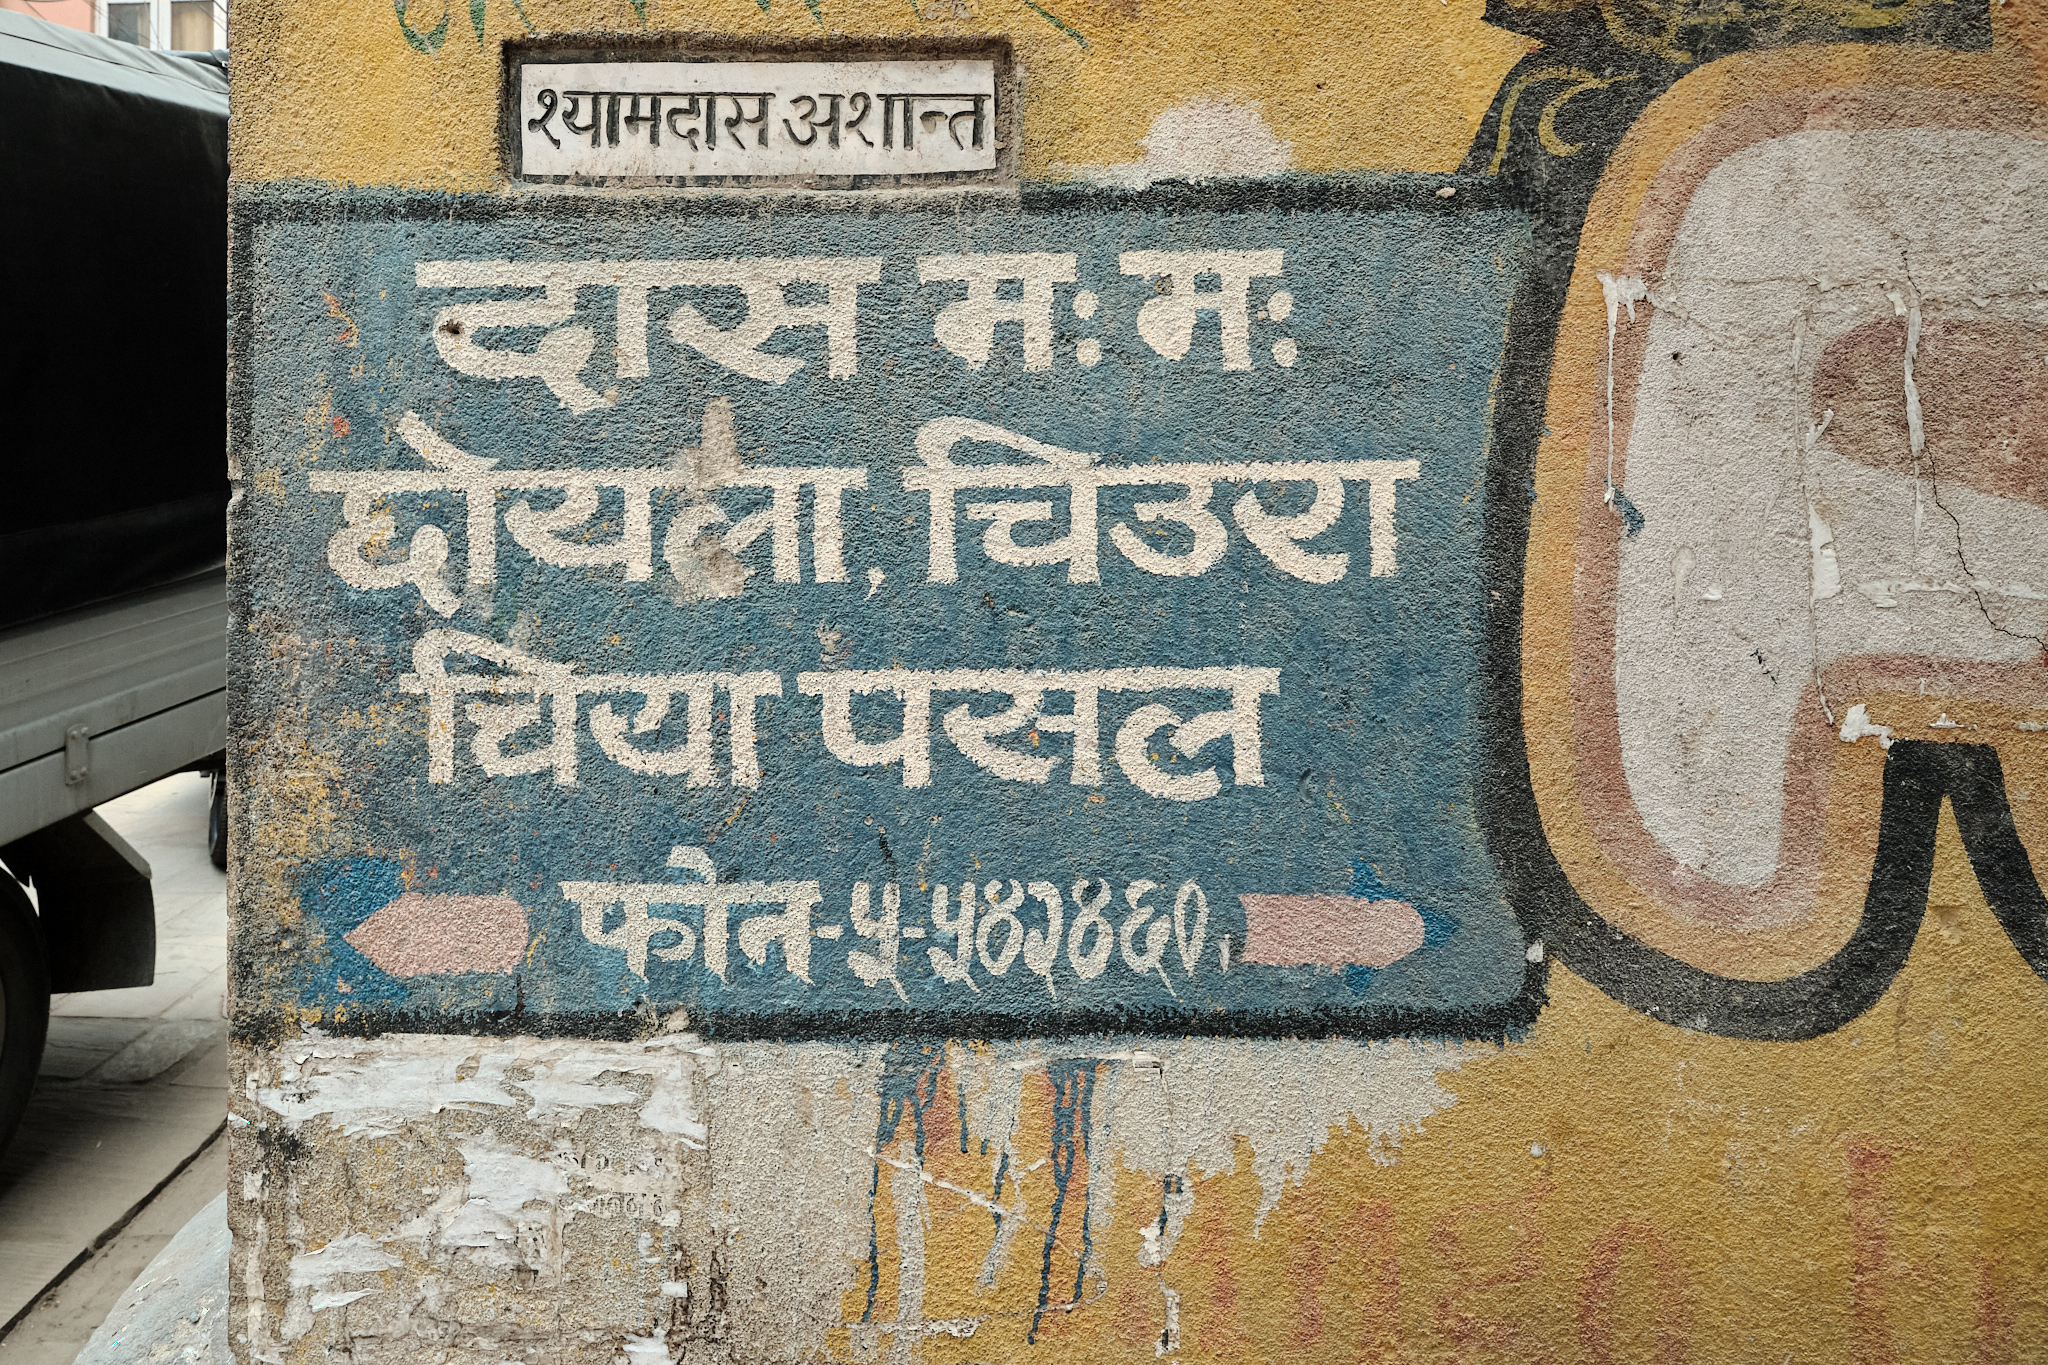 श्यामदास अशान्त
दास म: म:
छोयला, चिउरा
चिया पसल
फोन-५-५४२४६०